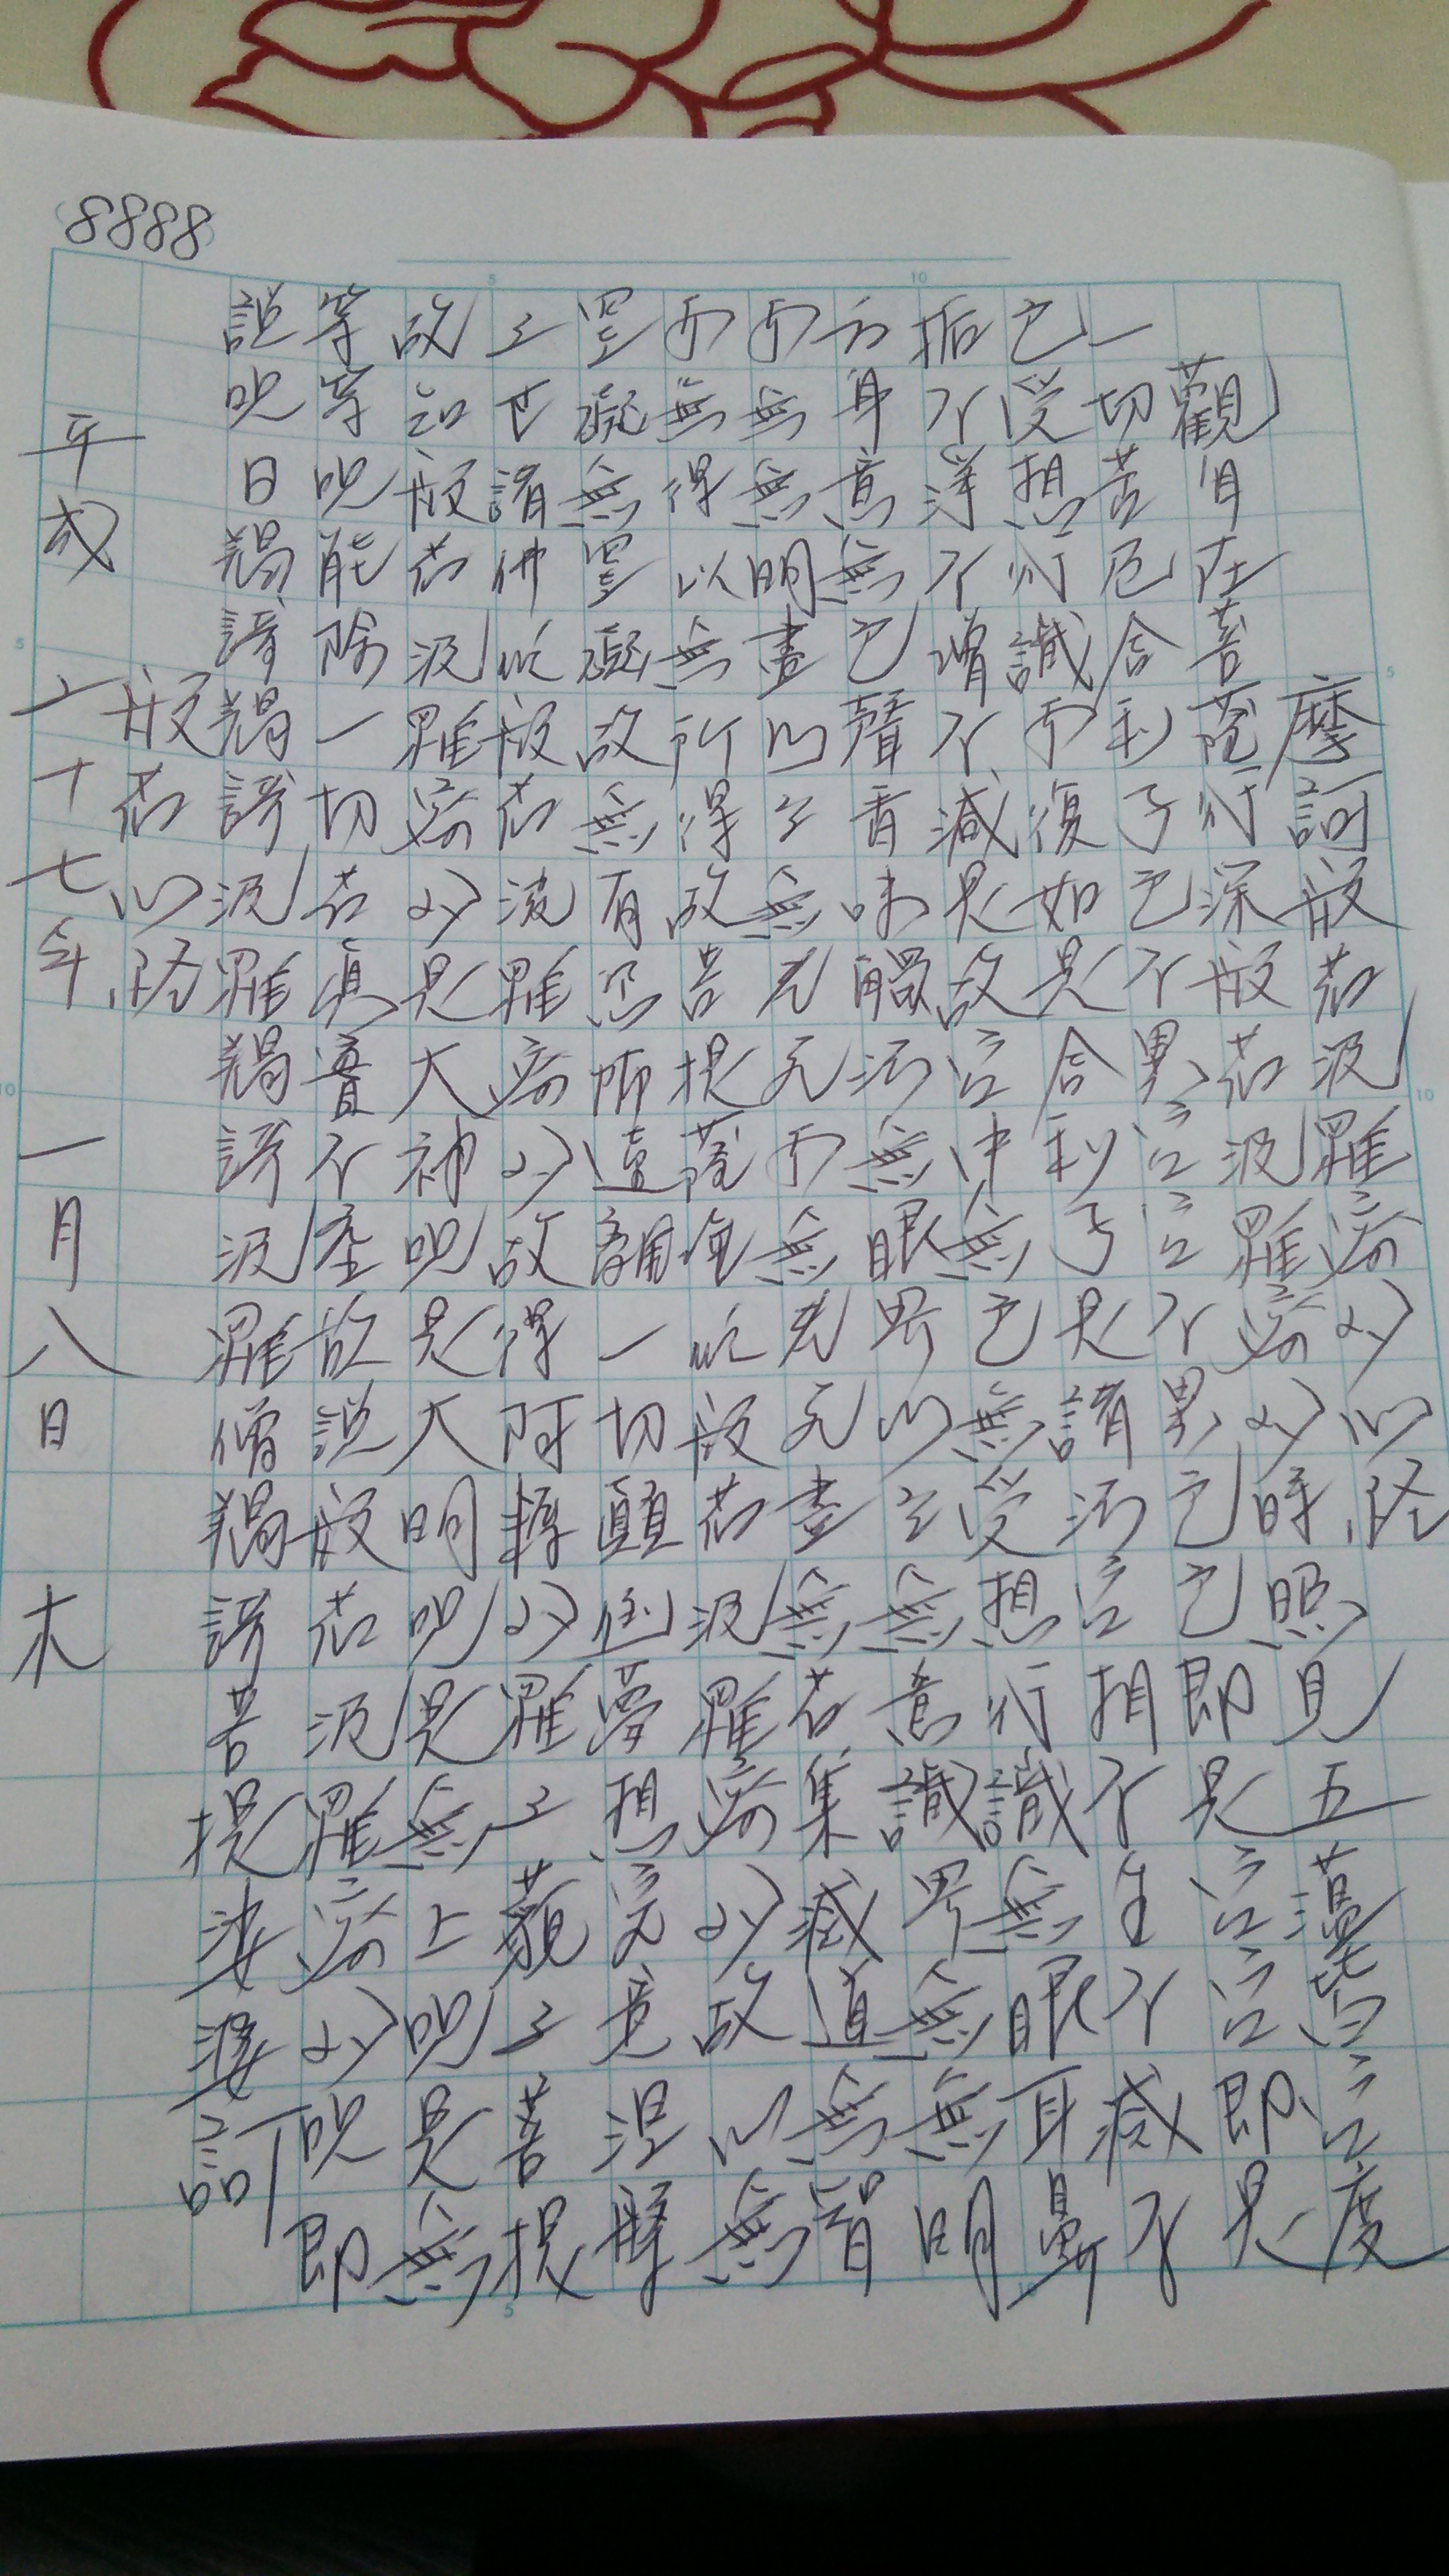 (8888)
摩訶般若波羅蜜多心経
観自在菩薩行深般若波羅蜜多時照見五蘊皆空度
一切苦厄舎利子色不異空空不異色色即是空空即是
色受想行識亦復如是舎利子是諸法空相不生不滅不
垢不浄不増不減是故空中無色無受想行識無眼耳鼻
舌身意無色聲香味觸法無眼界乃至意識界無無明
亦無無明盡乃至無老死亦無老死盡無苦集滅道無智
亦無得以無所得故菩提薩埵依般若波羅蜜多故心無
罣礙無罣礙故無有恐怖遠離一切顛倒夢想究竟涅槃
三世諸佛以般若波羅蜜多故得阿耨多羅三藐三菩提
故知般若波羅蜜多是大神呪是大明呪是無上呪是無
等等呪能除一切苦真實不虚故説般若波羅蜜多呪即
説呪曰羯諦羯諦波羅羯諦波羅僧羯諦菩提娑婆訶
般若心経
平成二十七年一月八日 木